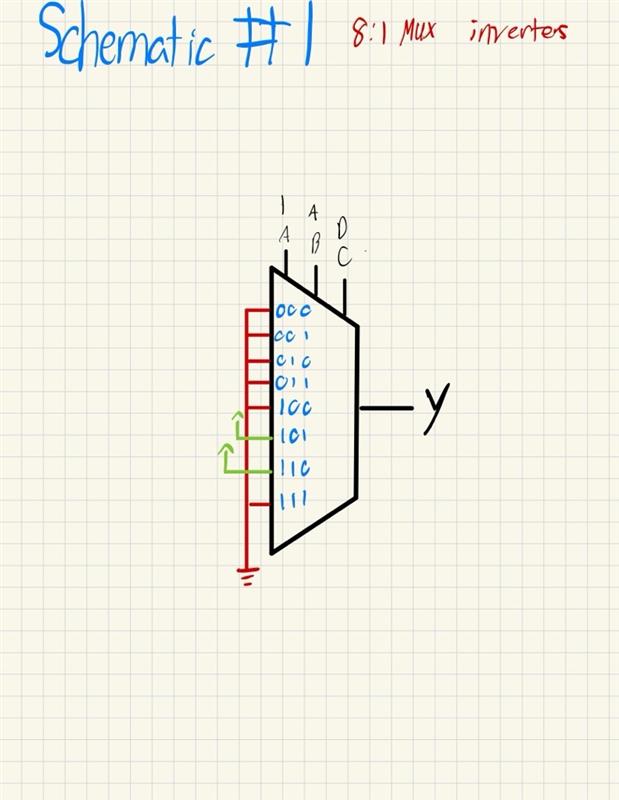 Schematic #1 8:1 Mux inverters
1 A D
A B C
000
001
010
011
100
101
110
111
Y